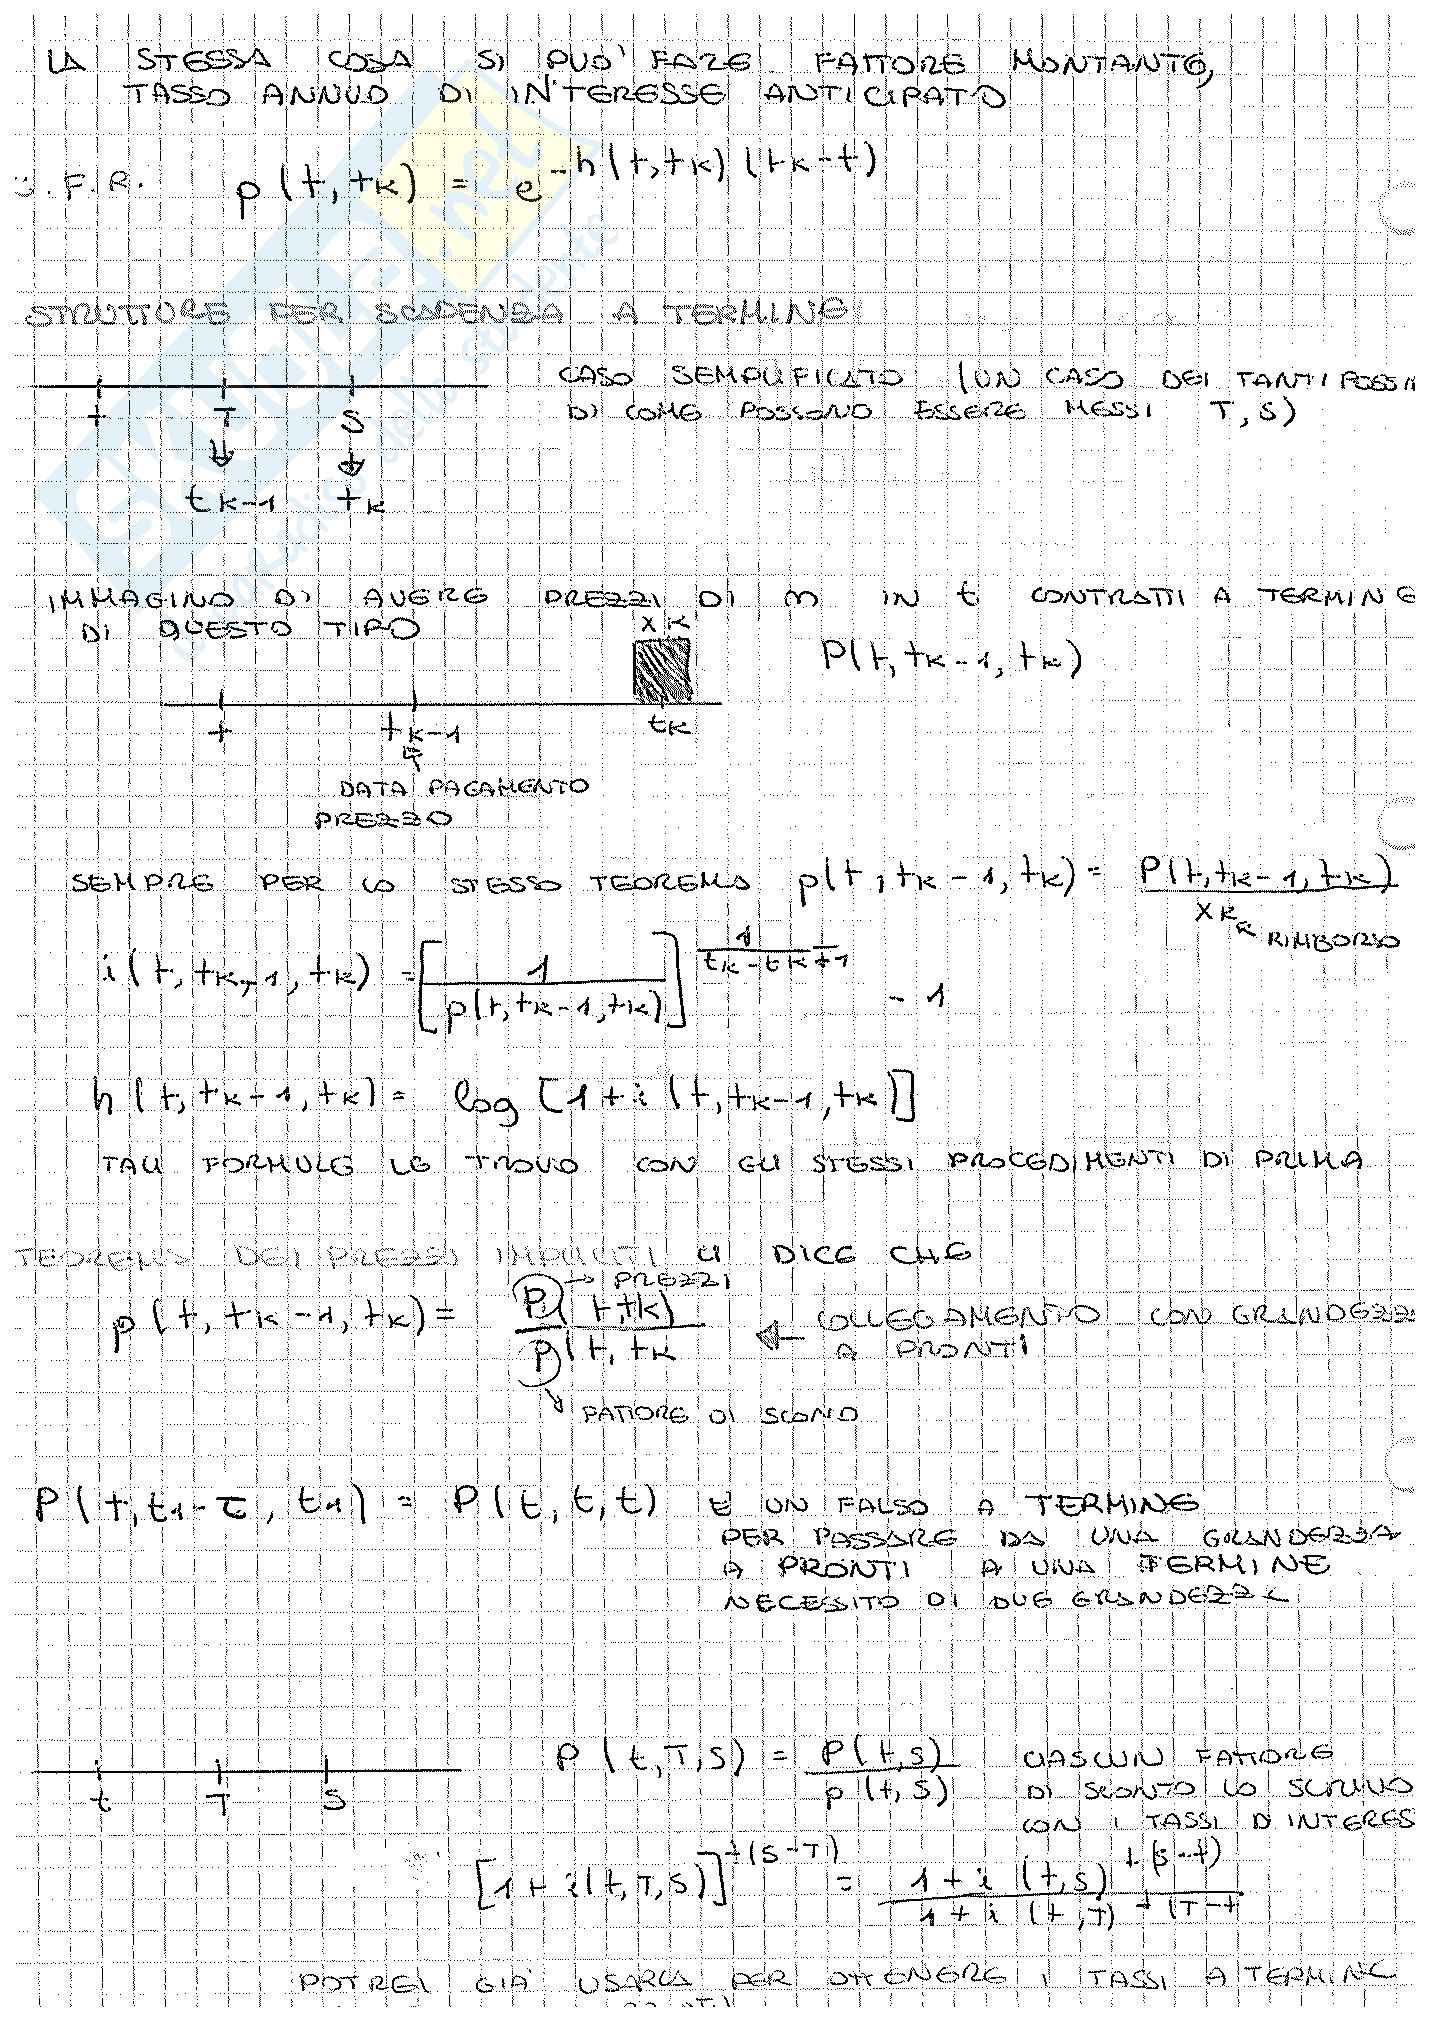 LA STESSA COSA SI PUO' FARE FATTORE MONTANTE,
TASSO ANNUO DI INTERESSE ANTICIPATO
F.R. p(t,tk) = e^-h(t,tk)(tk-t)
STRUTTURE PER SCADENZA A TERMINE
CASO SEMPLIFICATO (UN CASO DEI TANTI POSSI
DI COME POSSONO ESSERE MESSI T,S)
t T S
tk-1 tk
IMMAGINO DI AVERE PREZZI DI m IN t CONTRATTI A TERMINE
DI QUESTO TIPO
xk
P(t,tk-1,tk)
t tk-1 tk
DATA PAGAMENTO
PREZZO
SEMPRE PER LO STESSO TEOREMA p(t,tk-1,tk) = P(t,tk-1,tk)
xk RIMBORSO
i(t,tk-1,tk) = [1 / p(t,tk-1,tk)]^1/tk-tk-1 - 1
h(t,tk-1,tk) = log [1+i(t,tk-1,tk)]
TALI FORMULE LE TROVO CON GLI STESSI PROCEDIMENTI DI PRIMA
TEOREMA DEI PREZZI IMPLICITI CI DICE CHE
→ PREZZI
p(t,tk-1,tk) = P(t,tk) / p(t,tk ← COLLEGAMENTO CON GRANDEZZ
A PRONTI
FATTORE DI SCONTO
P(t,t1-τ,t1) = P(t,t,t) È UN FALSO A TERMINE
PER PASSARE DA UNA GRANDEZZA
A PRONTI A UNA TERMINE
NECESSITO DI DUE GRANDEZZE
P(t,T,S) = P(t,S) / p(t,S) CIASCUN FATTORE
t T S
DI SCONTO LO SCRIVO
CON I TASSI D'INTERES
[1+i(t,T,S)]^+(S-T) = 1+i(t,S)^+(S-t) / 1+i(t,T)^+(T-t
POTREI GIA' USARLA PER OTTENERE I TASSI A TERMINE